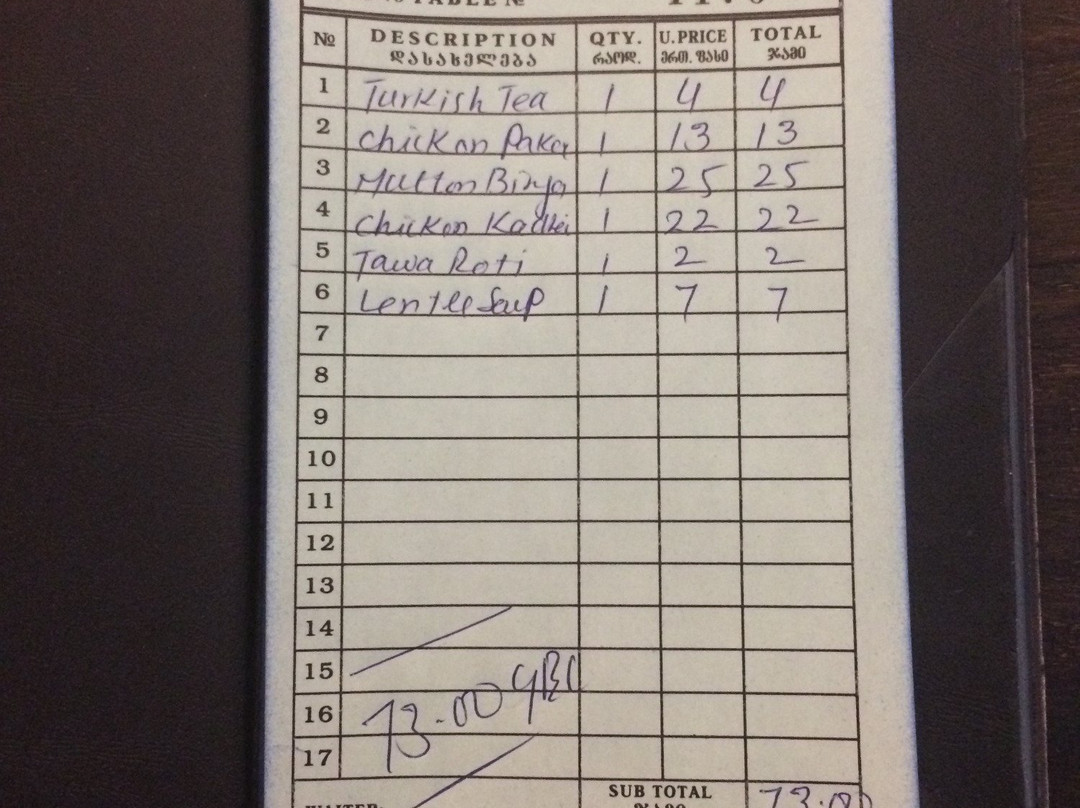 TABLE №
№ DESCRIPTION QTY. U.PRICE TOTAL
დასახელება რაოდ. ერთ. ფასი ჯამი
1 Turkish Tea 1 4 4
2 Chickan Pakor 1 13 13
3 Mutton Birya 1 25 25
4 Chicken Kadhei 1 22 22
5 Tawa Roti 1 2 2
6 Lentle Soup 1 7 7
7
8
9
10
11
12
13
14
15
16 73.00
17
SUB TOTAL 73.00